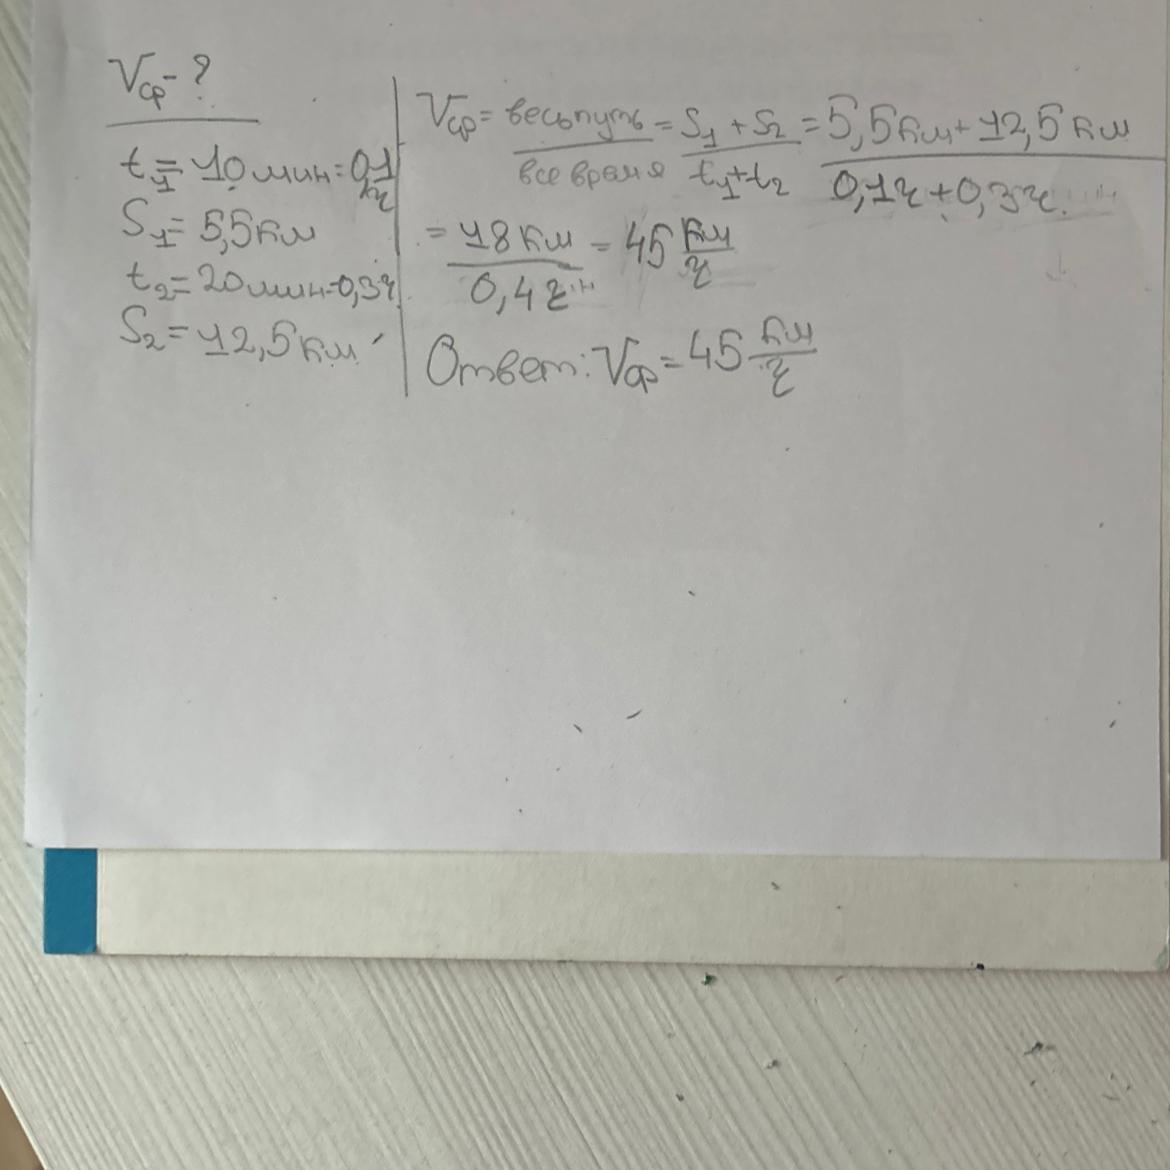 Vср - ?
t₁ = 10 мин = 0,1 ч
S₁ = 5,5 км
t₂ = 20 мин = 0,3 ч
S₂ = 12,5 км
Vср = весь путь / все время = S₁ + S₂ / t₁ + t₂ = 5,5 км + 12,5 км / 0,1 ч + 0,3 ч
= 18 км / 0,4 ч = 45 км/ч
Ответ: Vср = 45 км/ч